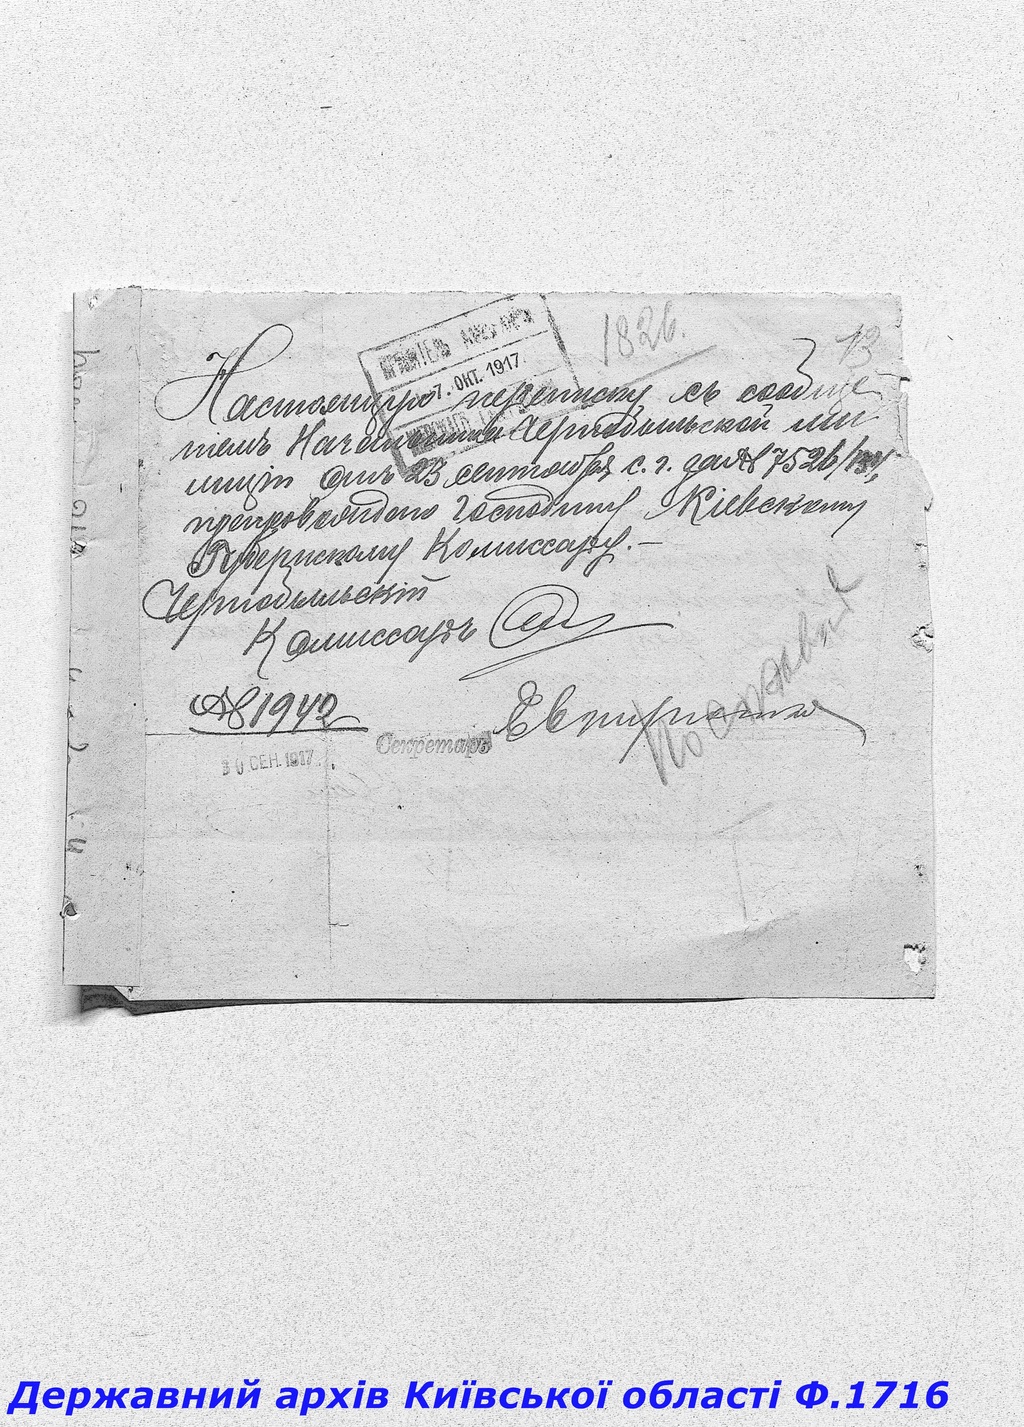 1826.
13
7. ОКТ. 1917.
Настоящую переписку съ сообще
ніемъ Начальника Чернобыльской ми
лиціи отъ 23 сентября с. г. за № 7526/
препровождаю Господину Кіевскому
Губернскому Комиссару.-
Чернобыльскій
Комиссаръ
№ 1942
Секретарь
30 СЕН. 1917.
Державний архів Київської області Ф.1716